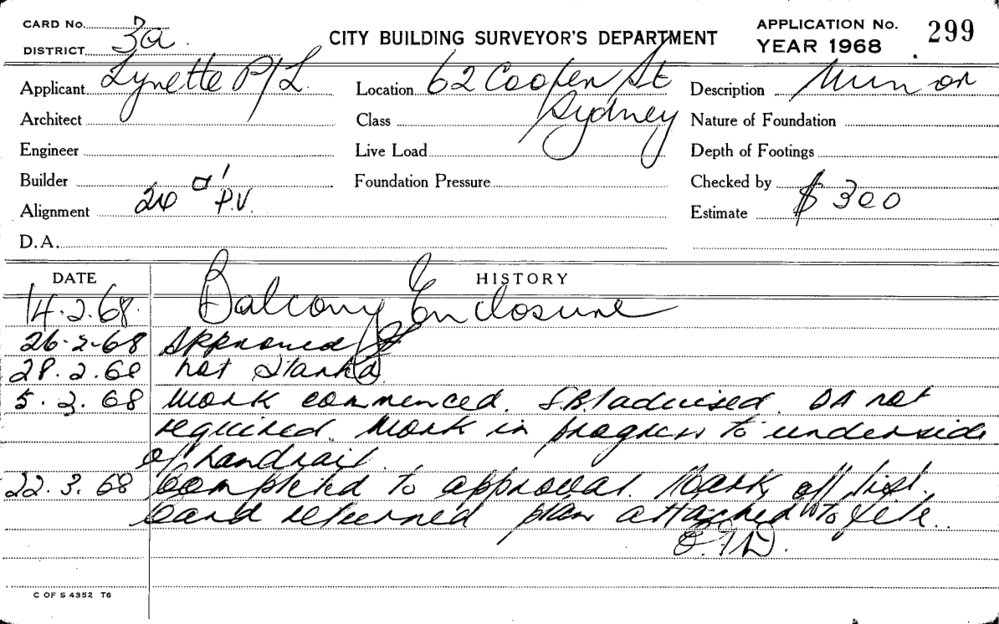 CARD No.
DISTRICT 3a.
CITY BUILDING SURVEYOR'S DEPARTMENT
APPLICATION No. 299
YEAR 1968
Applicant Lynette P/L.
Location 62 Cooper St
Sydney
Description Minor
Architect
Class
Nature of Foundation
Engineer
Live Load
Depth of Footings
Builder
Foundation Pressure
Checked by
Alignment P.V.
Estimate $300
D.A.
DATE HISTORY
14.2.68. Balcony Enclosure
26-2-68 Approved
28.2.68 not started
5.3.68 Work commenced. advised. DA not
required. Work in progress to underside
of handrail.
22.3.68 Completed to approval. Mark off list.
Card returned plan attached to file.
C OF S 4352 T6